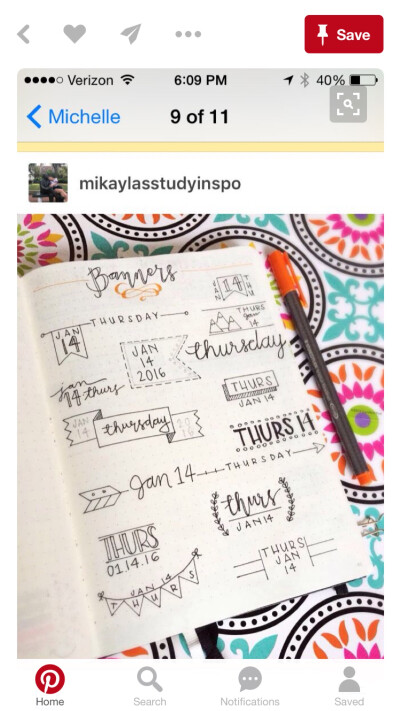 Save
Verizon 6:09 PM 40%
Michelle 9 of 11
mikaylasstudyinspo
Banners
JAN 14 THU
THURSDAY
JAN
14
THURS
Jan
14
JAN
14
2016
thursday
jan
14 thurs
THURS
JAN 14
JAN
14
thursday
20
16
THURS 14
Jan 14
THURSDAY
thurs
JAN 14
THURS
01.14.16
THURS
JAN
14
JAN 14
THURS
Home Search Notifications Saved